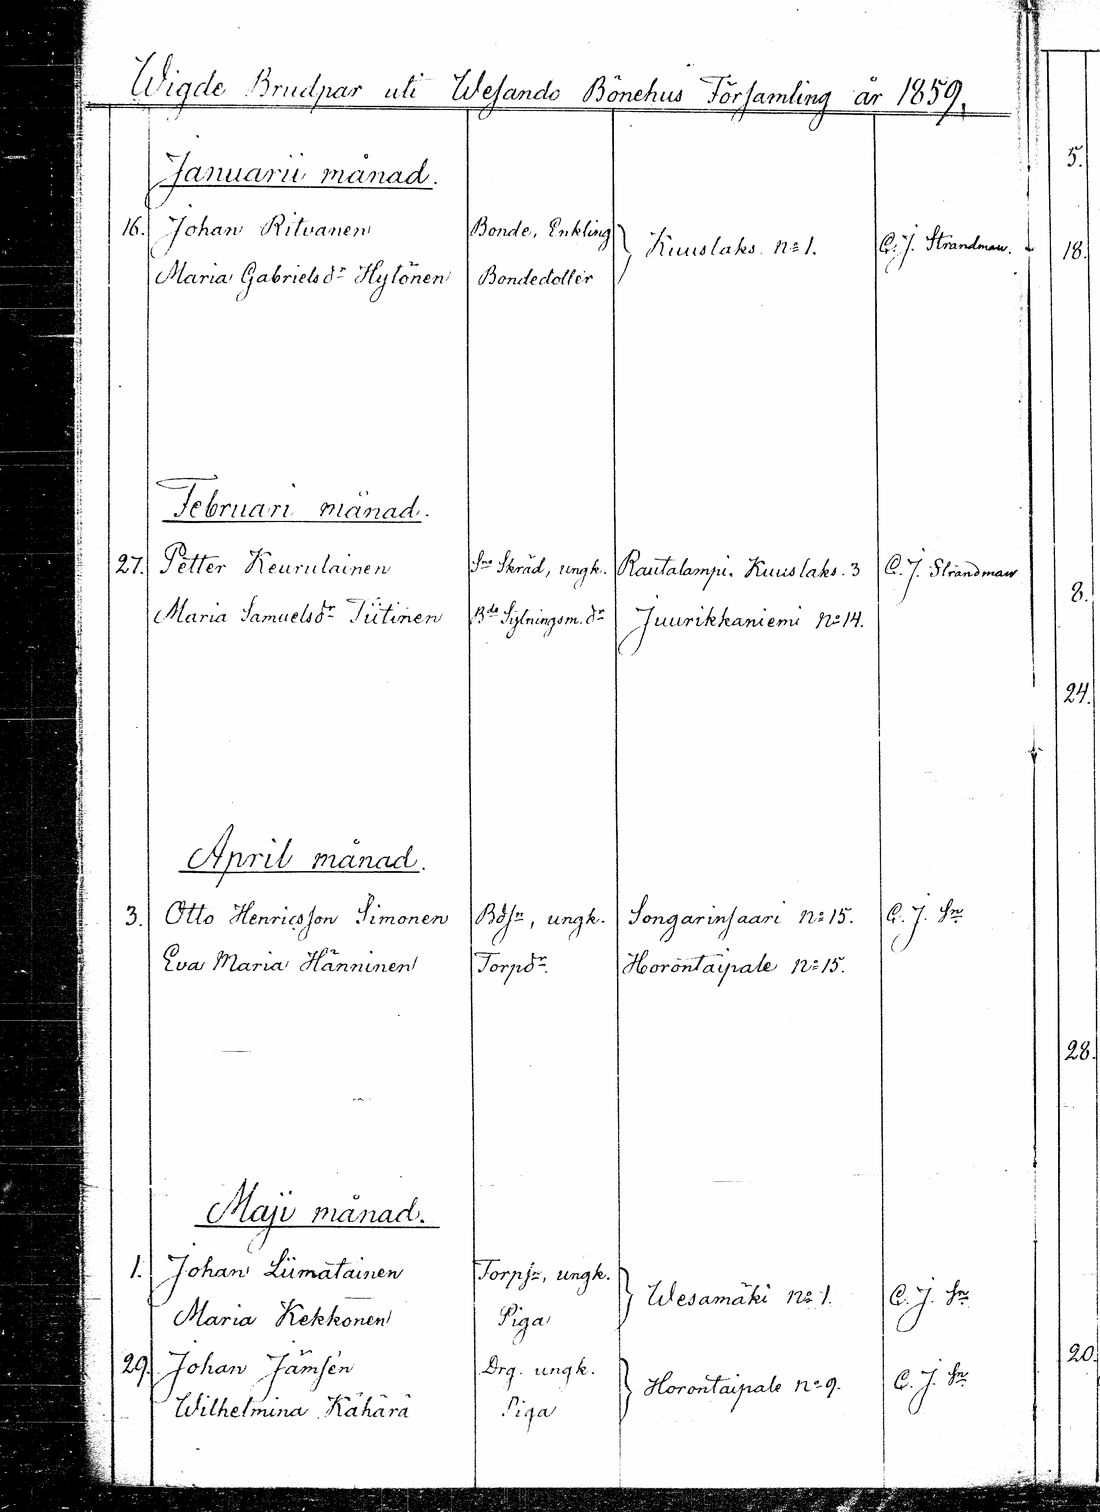 Wigde Brudpar uti Wesando Bönehus Församling år 1859.
Januarii månad.
16. Johan Ritvanen Bonde, Enkling Kuuslaks. n:o 1. C. J. Strandman.
Maria Gabrielsdr Hytönen Bondedotter
Februari månad.
27. Petter Keurulainen Sne Skräd, ungk. Rautalampi. Kuuslaks. 3 C. J. Strandman
Maria Samuelsdr Tiitinen Bde Sytningsm. dr Juurikkaniemi n:o 14.
April månad.
3. Otto Henricsson Simonen Bdsn, ungk. Songarinsaari n:o 15. C. J. Sn
Eva Maria Hänninen Torpdr. Horontaipale n:o 15.
Maji månad.
1. Johan Liimatainen Torpsn, ungk. Wesamäki n:o 1. C. J. Sn
Maria Kekkonen Piga
29. Johan Jämsén Drg. ungk. Horontaipale n:o 9. C. J. Sn
Wilhelmina Kähärä Piga
5.
18.
8.
24.
28.
20.